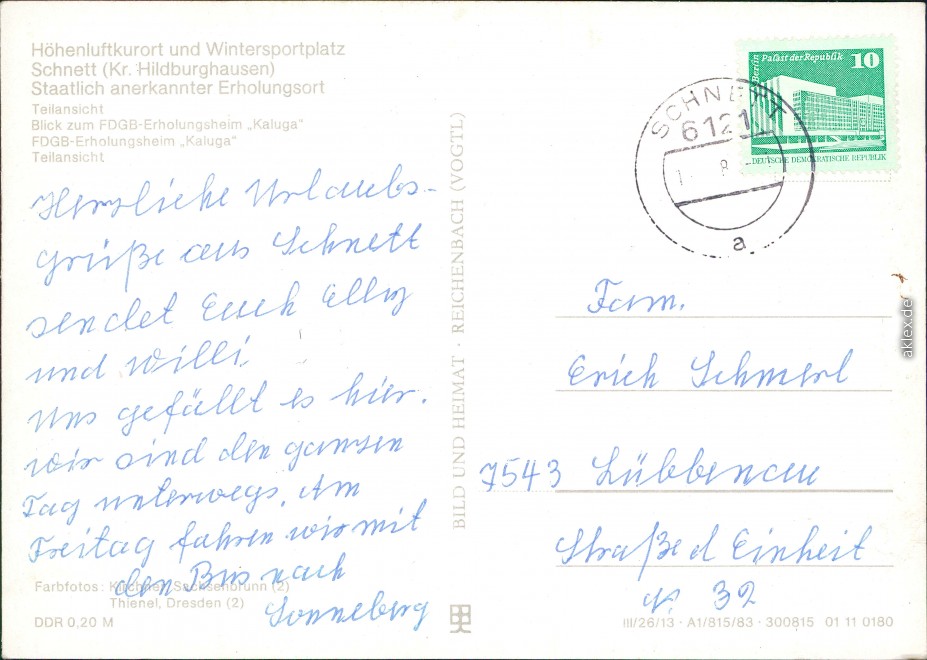 Höhenluftkurort und Wintersportplatz
Schnett (Kr. Hildburghausen)
Staatlich anerkannter Erholungsort
Teilansicht
Blick zum FDGB-Erholungsheim „Kaluga“
FDGB-Erholungsheim „Kaluga“
Teilansicht
Herzliche Urlaubs-
grüße aus Schnett
sendet Euch Elly
und Willi.
Uns gefällt es hier.
Wir sind den ganzen
Tag unterwegs. Am
Freitag fahren wir mit
den Bus nach
Sonneberg
Farbfotos: Kirchner, Sachsenbrunn (2)
Thienel, Dresden (2)
DDR 0,20 M
BILD UND HEIMAT · REICHENBACH (VOGTL)
Berlin Palast der Republik 10
DEUTSCHE DEMOKRATISCHE REPUBLIK
SCHNETT
6121
8
a
Fam.
Erich Schmerl
7543 Lübbenau
Straße d Einheit
Nr. 32
III/26/13 · A1/815/83 · 300815 01 11 0180
aklex.de